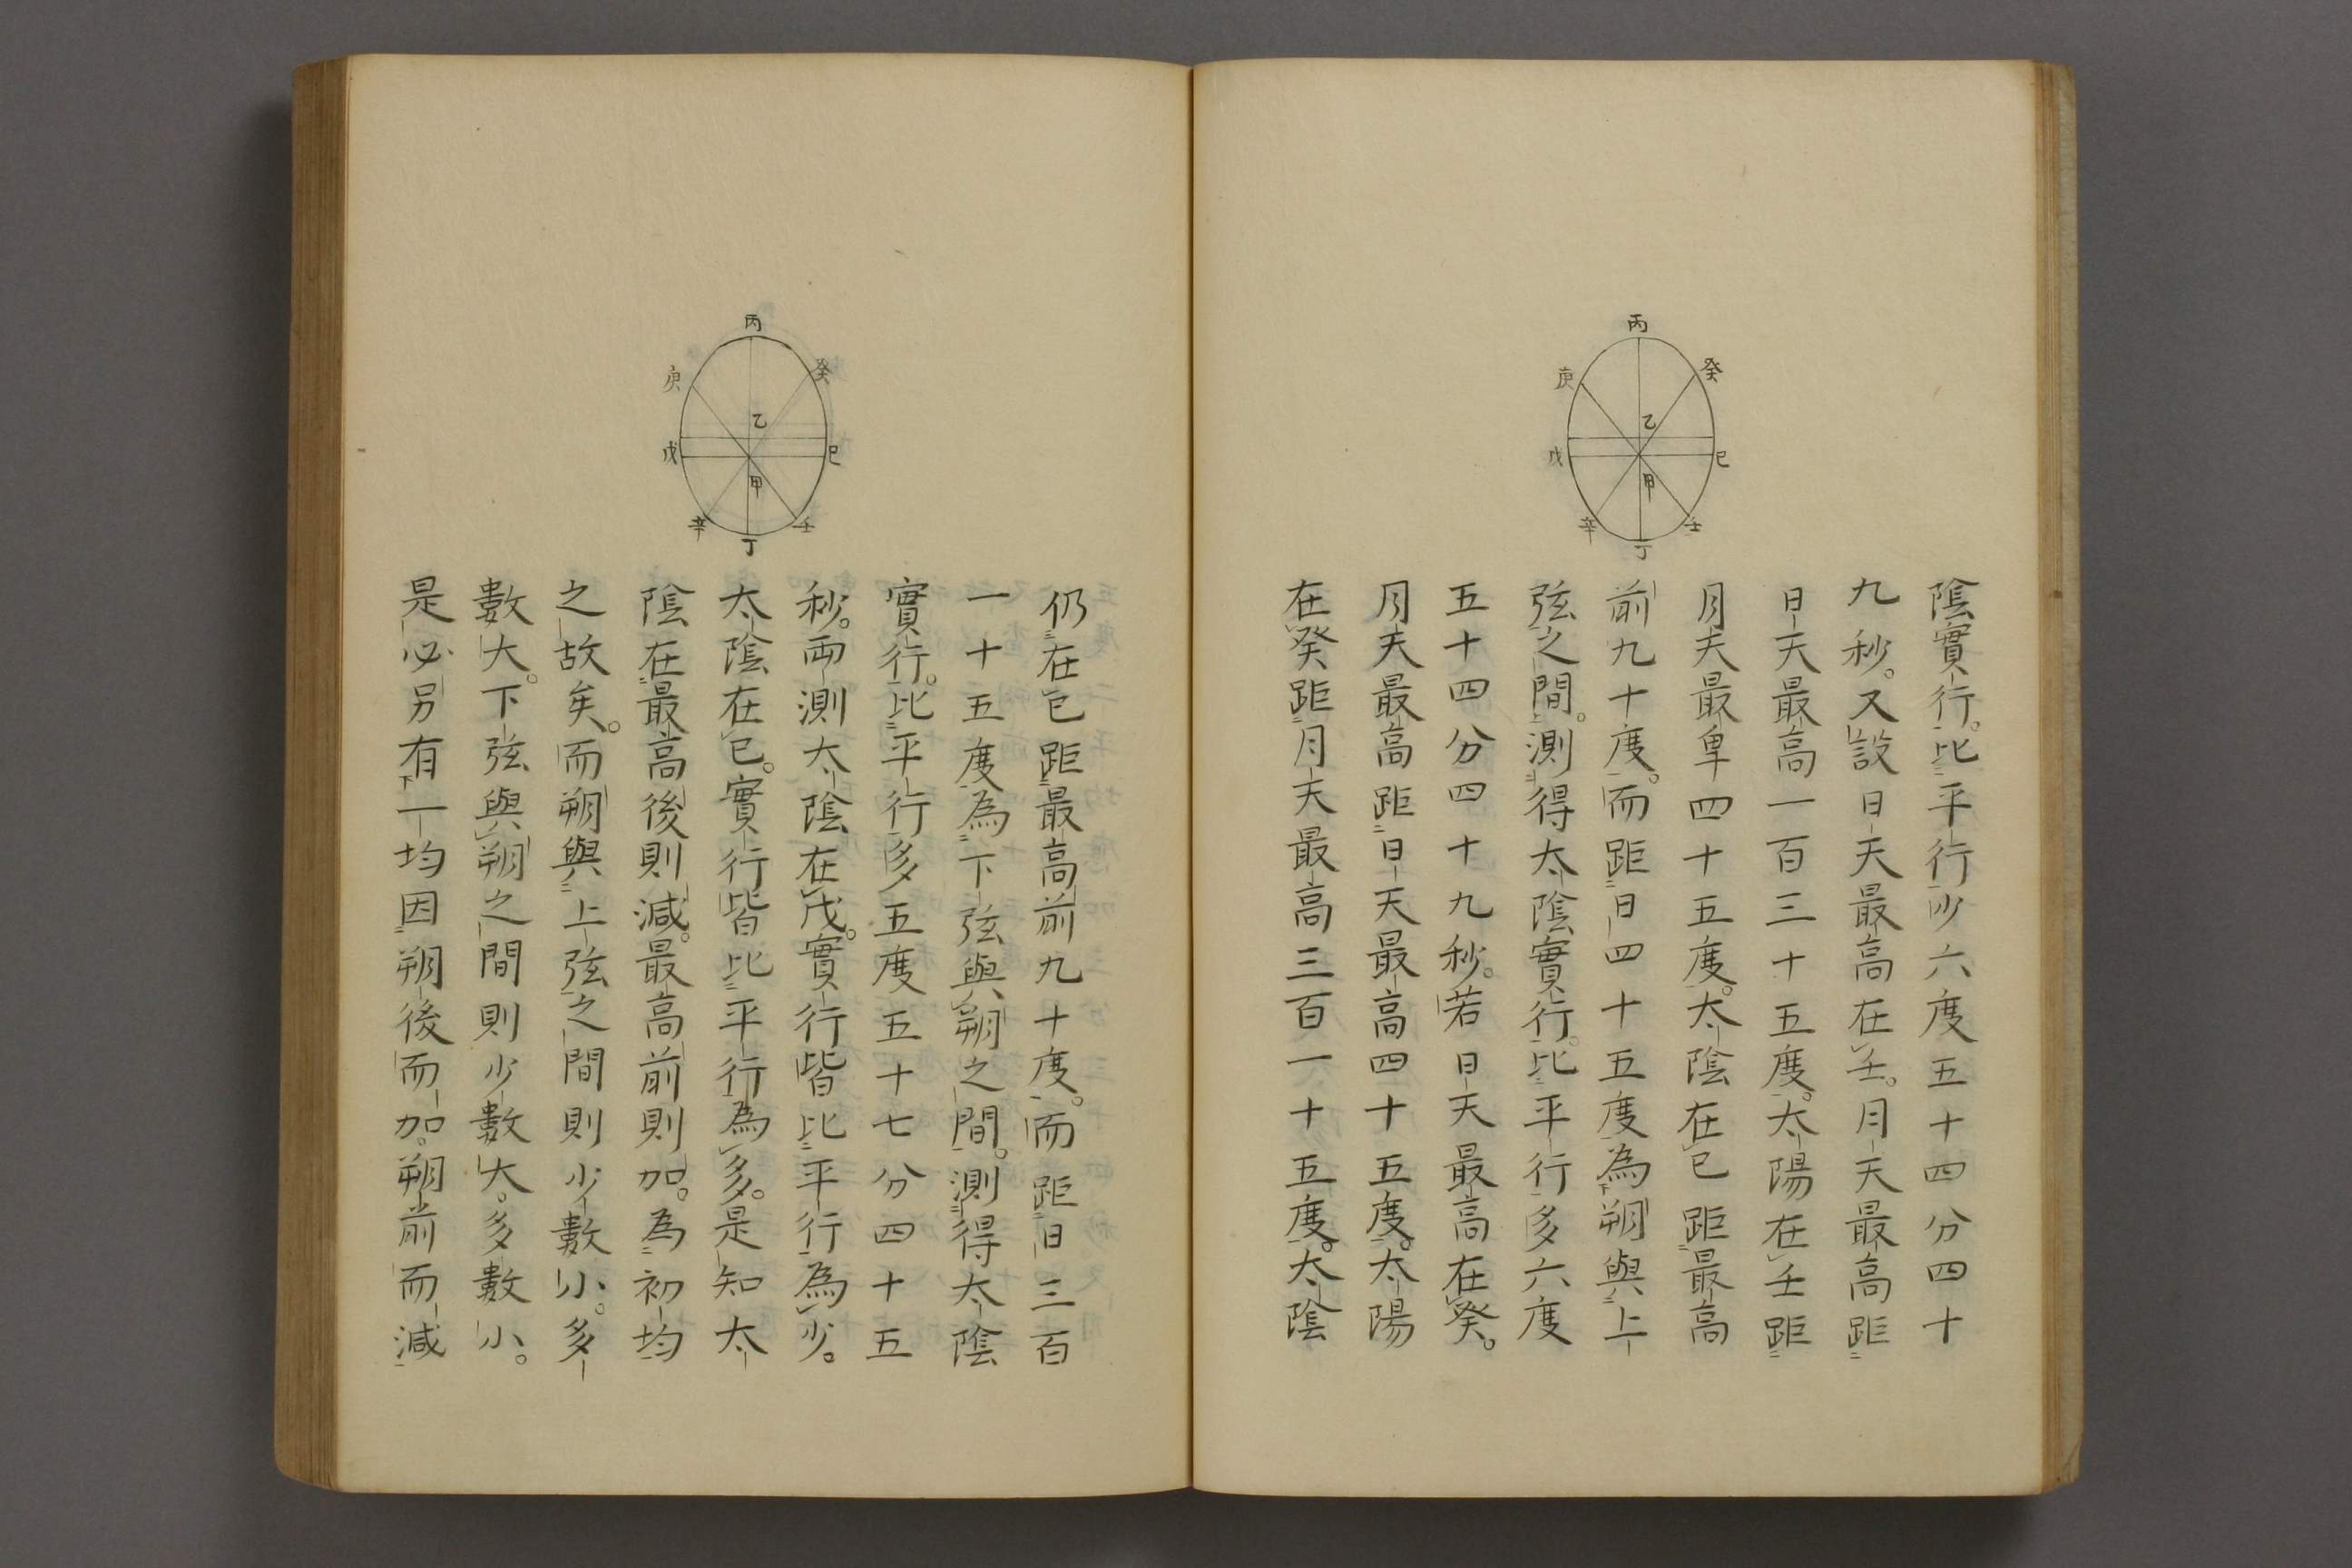 丙
癸
庚
乙
戊
巳
甲
辛
壬
丁
陰實行。比平行少六度五十四分四十
九秒。又設日天最高在壬。月天最高距
日天最高一百三十五度。太陽在壬距
月天最卑四十五度。太陰在巳距最高
前九十度。而距日四十五度為朔與上
弦之間。測得太陰實行。比平行多六度
五十四分四十九秒。若日天最高在癸。
月天最高距日天最高四十五度。太陽
在癸距月天最高三百一十五度。太陰
丙
癸
庚
乙
戊
巳
甲
辛
壬
丁
仍在巳距最高前九十度。而距日三百
一十五度為下弦與朔之間。測得太陰
實行。比平行多五度五十七分四十五
秒。兩測太陰在戊。實行皆比平行為少。
太陰在巳。實行皆比平行為多。是知太
陰在最高後則減。最高前則加。為初均
之故矣。而朔與上弦之間則少數小。多
數大。下弦與朔之間則少數大。多數小。
是必另有一均因朔後而加。朔前而減